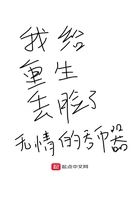 我给
重生
丢脸了
无情的香币器
起点中文网